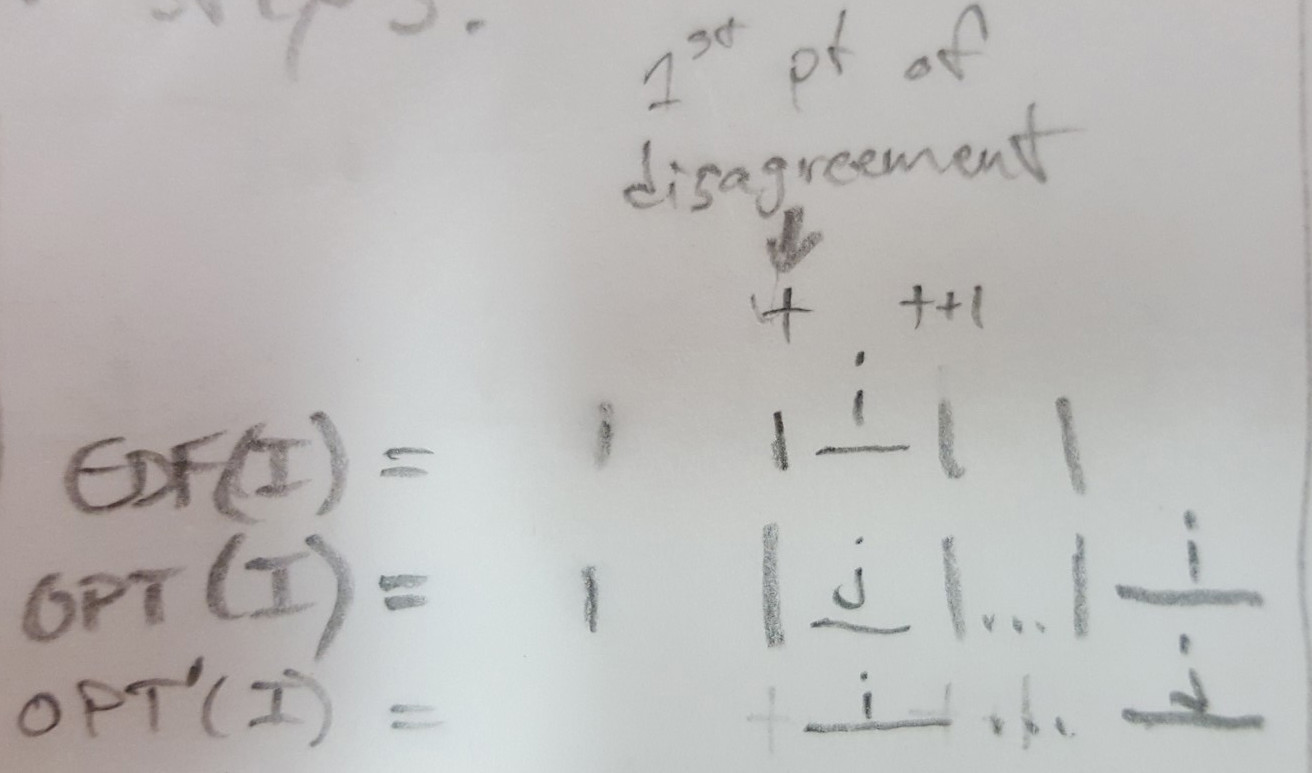 steps.
1st pt of
disagreement
t t+1
EDF(I) = | | i | |
OPT(I) = | | j |...| i
OPT'(I) = i ... j